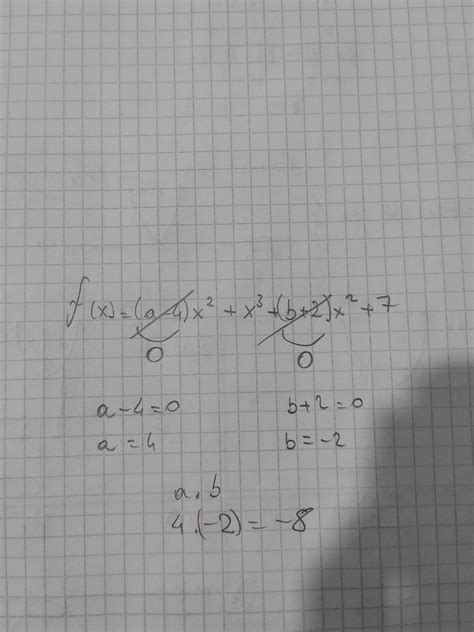 f(x)=(a-4)x² + x³ +(b+2)x² + 7
0 0
a-4=0 b+2=0
a=4 b=-2
a.b
4.(-2)=-8